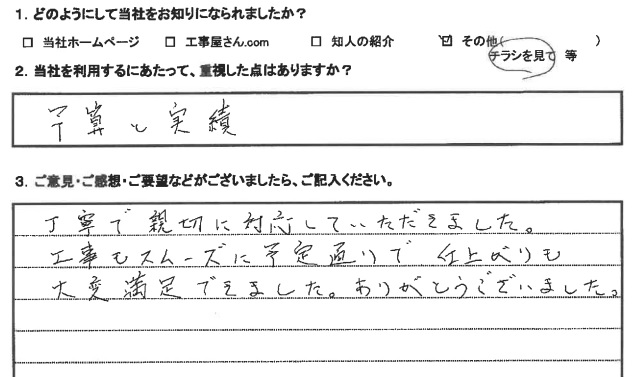 1. どのようにして当社をお知りになられましたか？
□ 当社ホームページ □ 工事屋さん.com □ 知人の紹介 ☑ その他( )
チラシを見て 等
2. 当社を利用するにあたって、重視した点はありますか？
予算と実績
3. ご意見・ご感想・ご要望などがございましたら、ご記入ください。
丁寧で親切に対応していただきました。
工事もスムーズに予定通りで仕上がりも
大変満足できました。ありがとうございました。